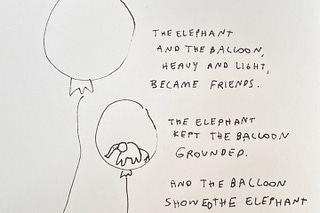 THE ELEPHANT
AND THE BALLOON,
HEAVY AND LIGHT,
BECAME FRIENDS.
THE ELEPHANT
KEPT THE BALLOON
GROUNDED.
AND THE BALLOON
SHOWED THE ELEPHANT